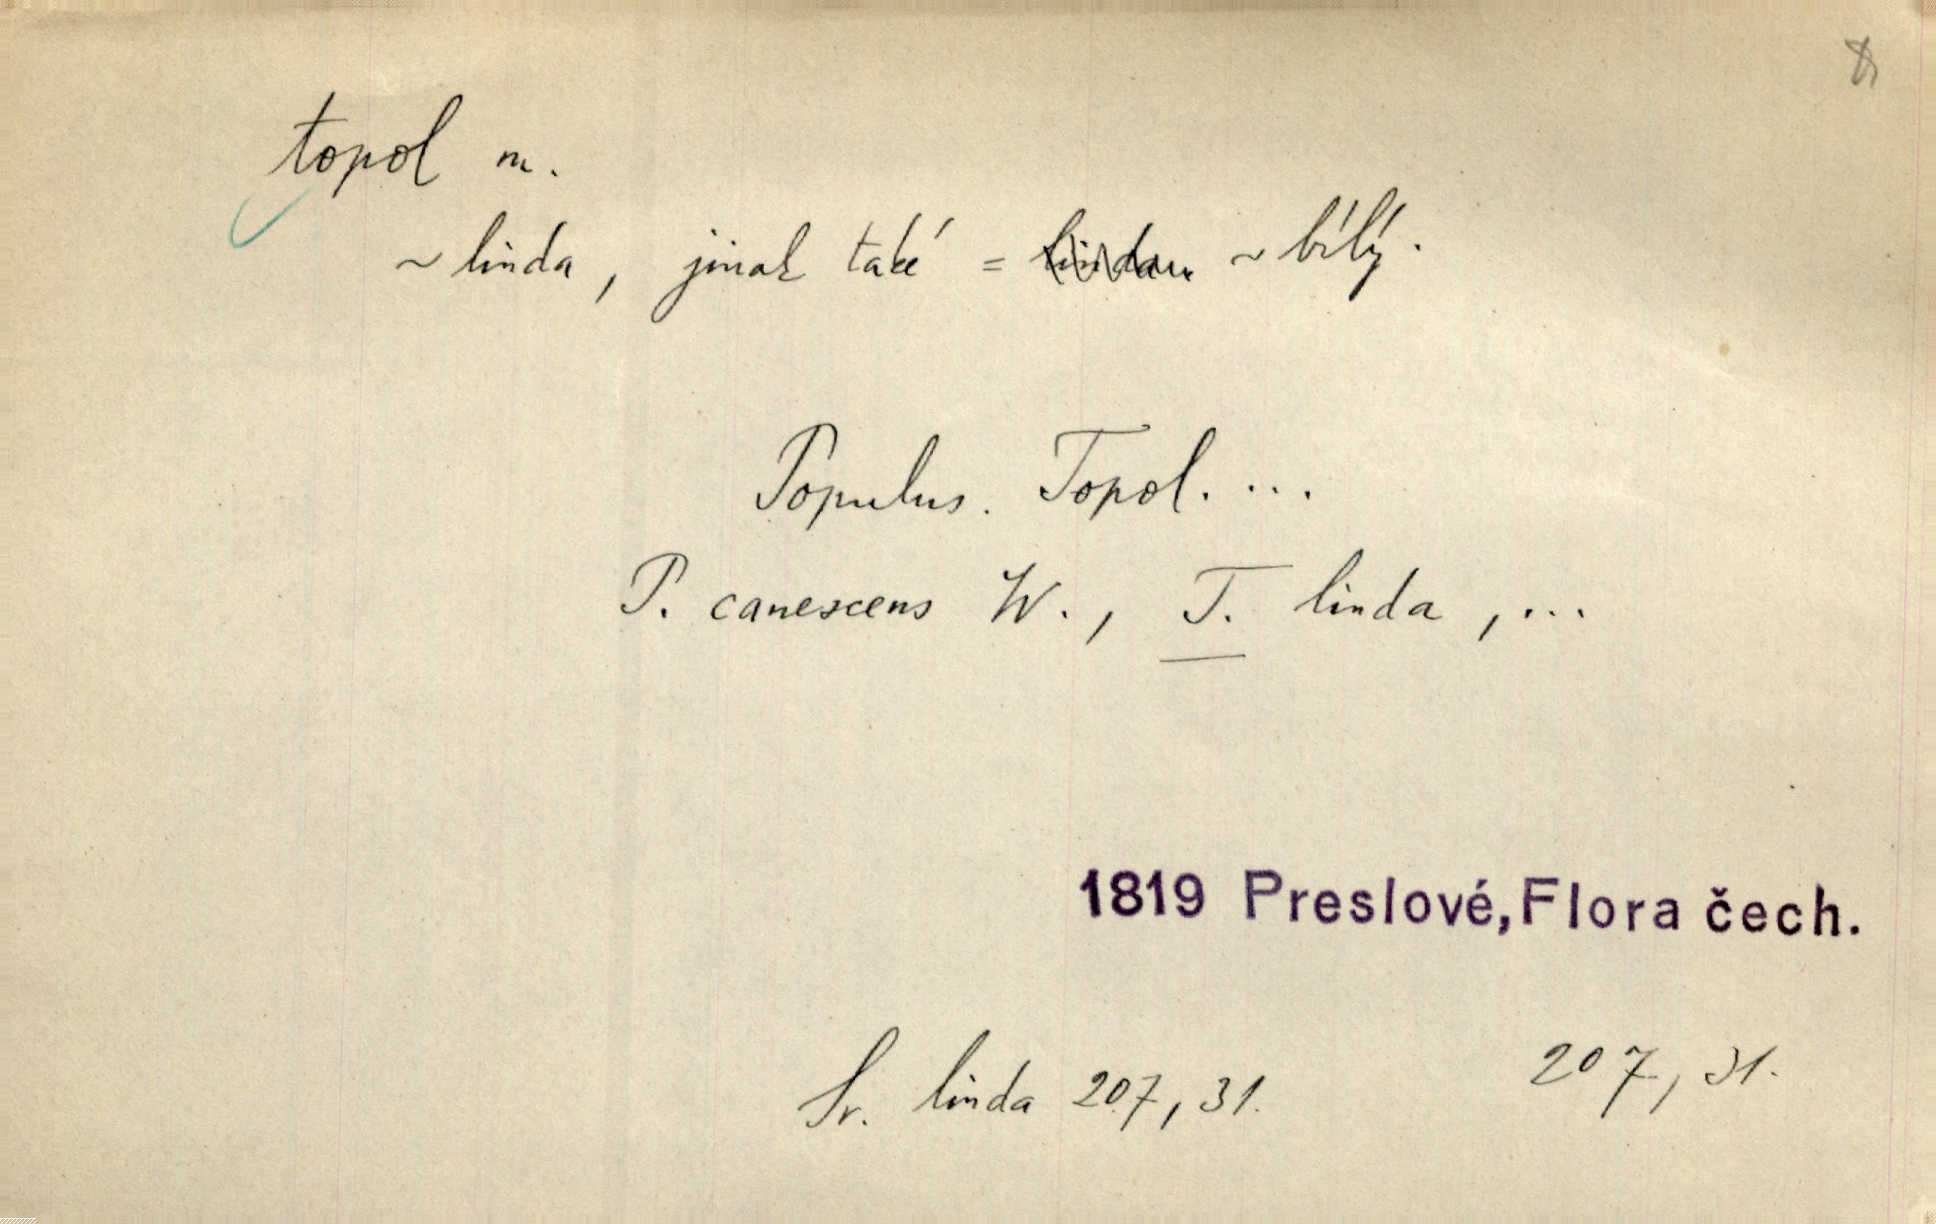 topol m.
~ linda, jinak také = ~ bílý.
Populus. Topol. ...
P. canescens W., T. linda, ...
1819 Preslové, Flora čech.
Sr. linda 207, 31.
207, 31.